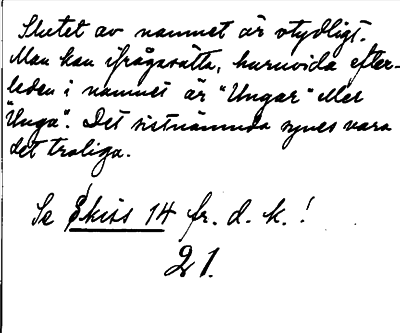 Slutet av namnet är otydligt.
Man kan ifrågasätta, huruvida efter-
leden i namnet är "Ungar" eller
"Unga". Det sistnämnda synes vara
det troliga.
Se Skiss 14 fr. d. k.!
21.